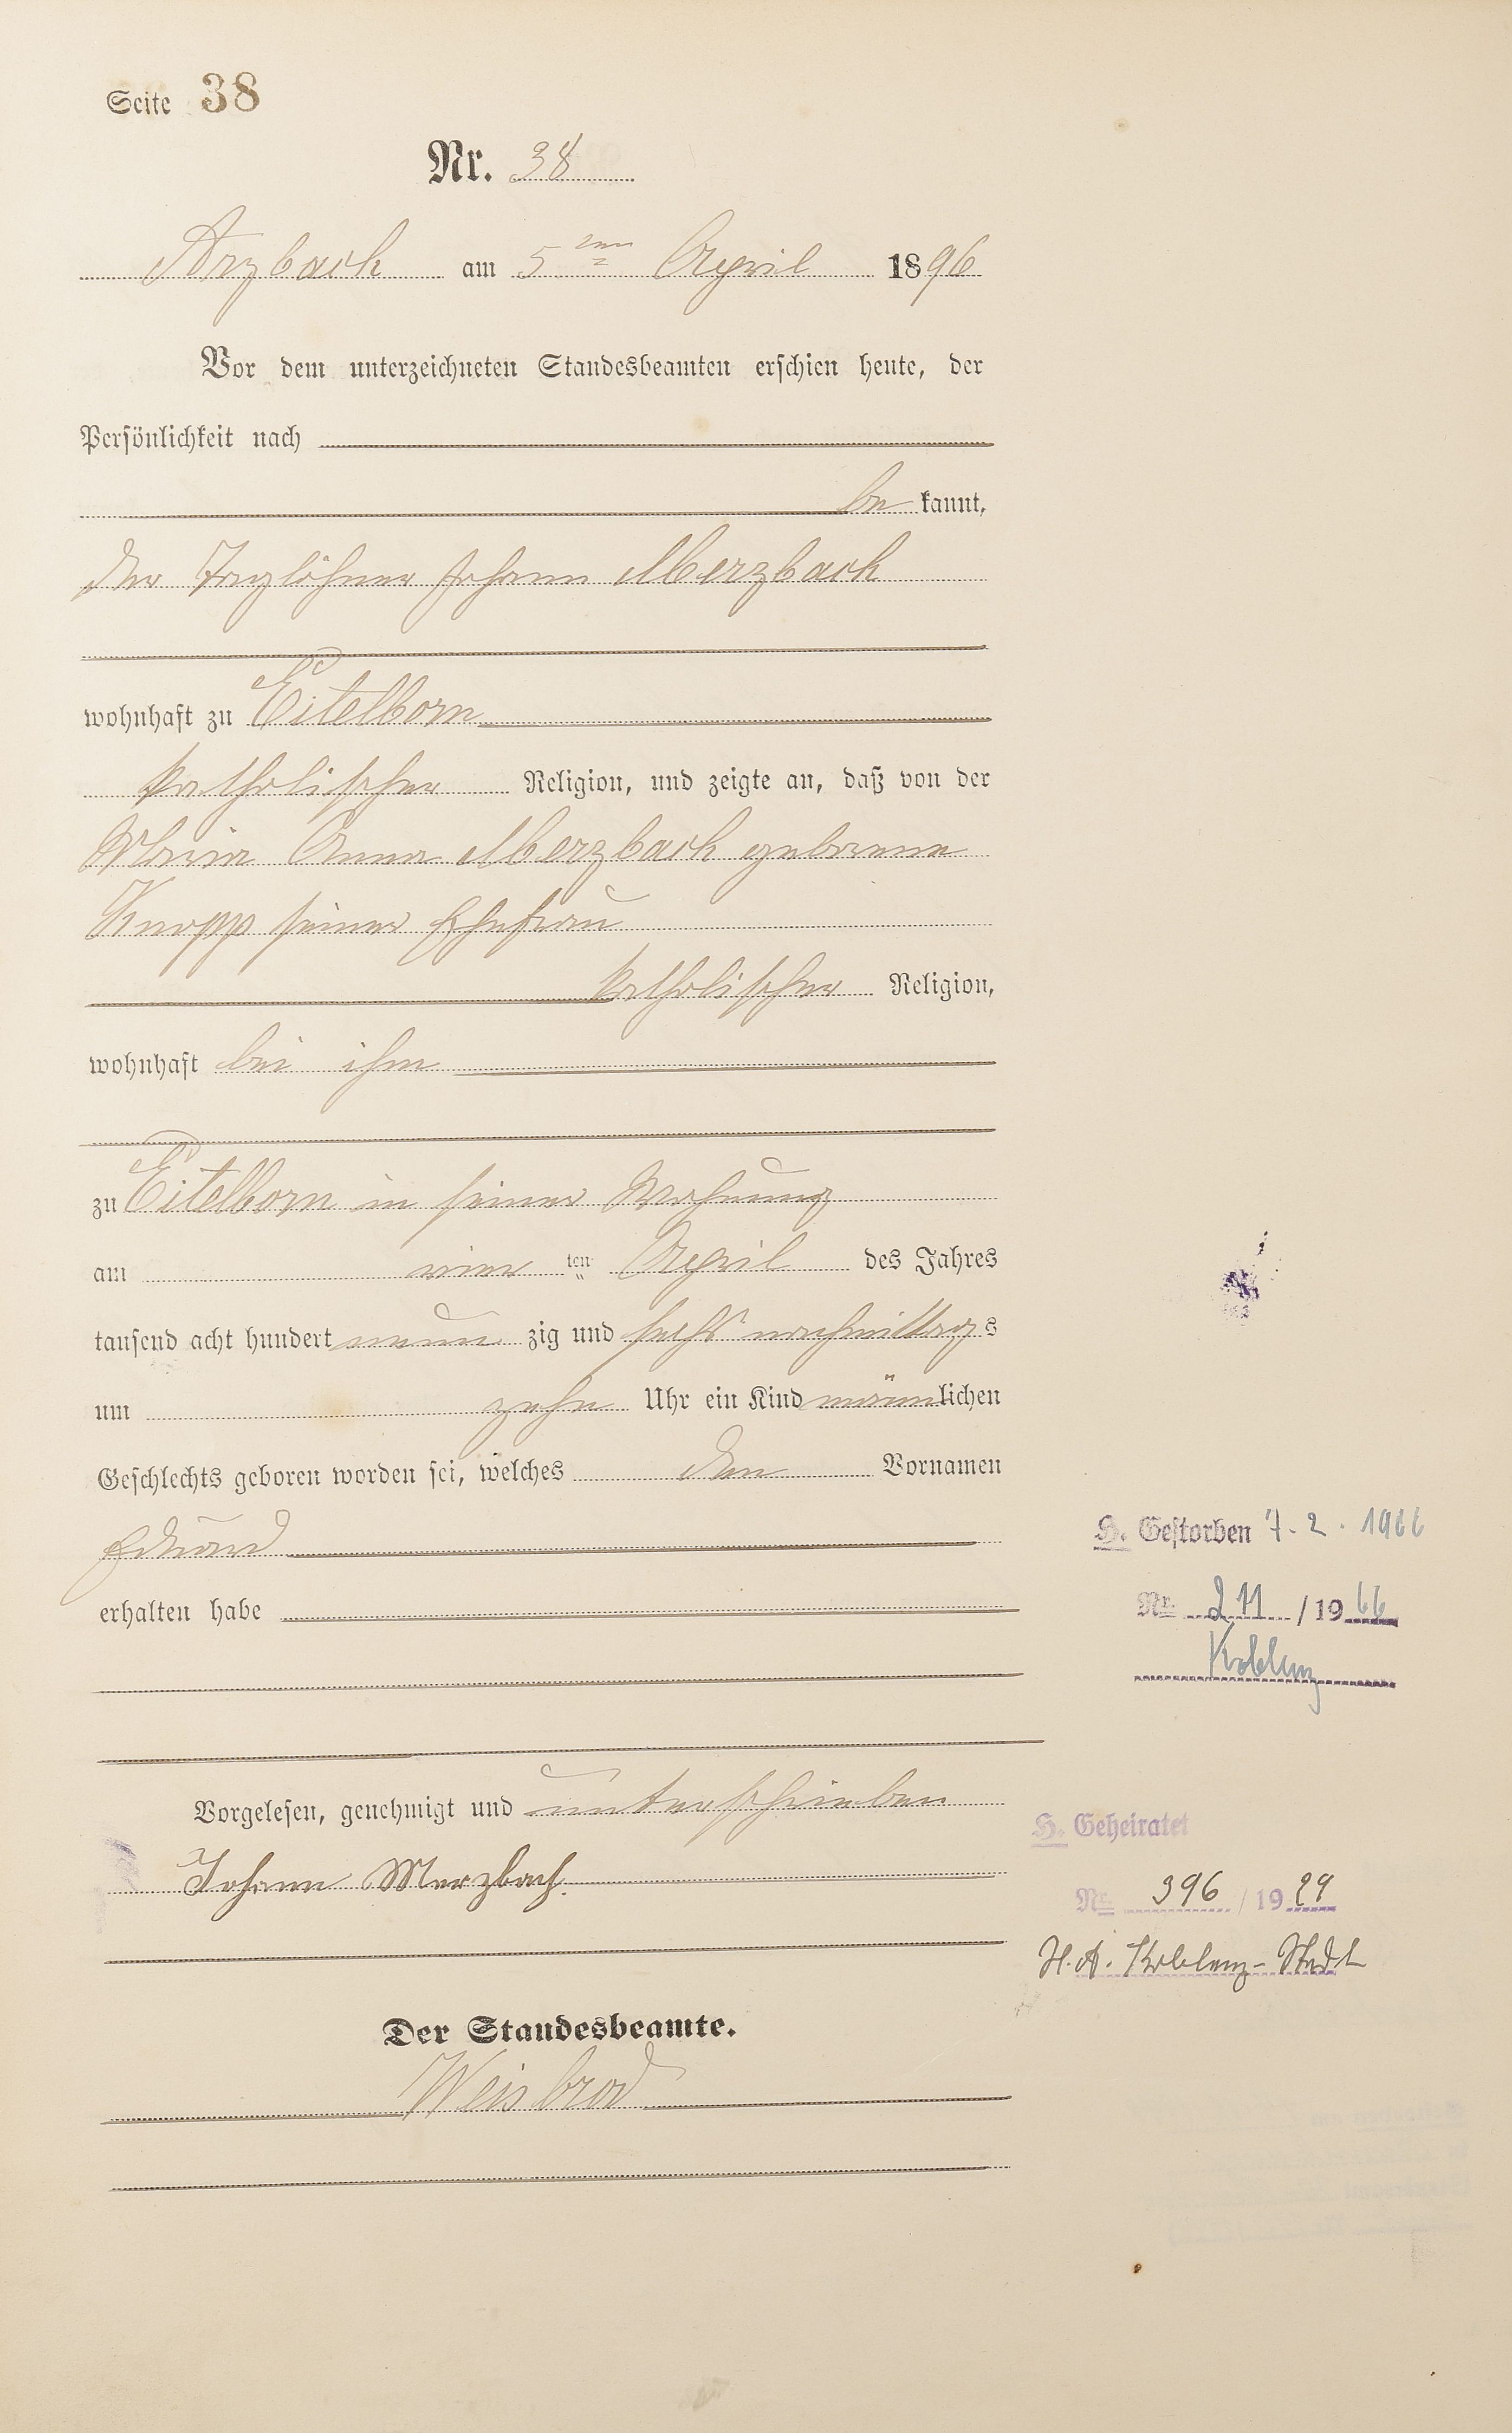 Seite 38
Nr. 38
Arzbach am 5ten April 1896
Vor dem unterzeichneten Standesbeamten erschien heute, der
Persönlichkeit nach
be kannt,
der Taglöhner Johann Merzbach
wohnhaft zu Eitelborn
katholischer Religion, und zeigte an, daß von der
Maria Anna Merzbach geborene
Knopp seiner Ehefrau
katholischer Religion,
wohnhaft bei ihm
zu Eitelborn in seiner Wohnung
am vier ten April des Jahres
tausend acht hundert neun zig und sechs nachmittags
um zehn Uhr ein Kind männlichen
Geschlechts geboren worden sei, welches den Vornamen
Eduard
erhalten habe
H. Gestorben 7.2.1966
Nr. 211 / 1966
Koblenz
Vorgelesen, genehmigt und unterschrieben
Johann Merzbach.
H. Geheiratet
Nr. 396 / 1929
St. A. Koblenz-Stadt
Der Standesbeamte.
Weisbrod